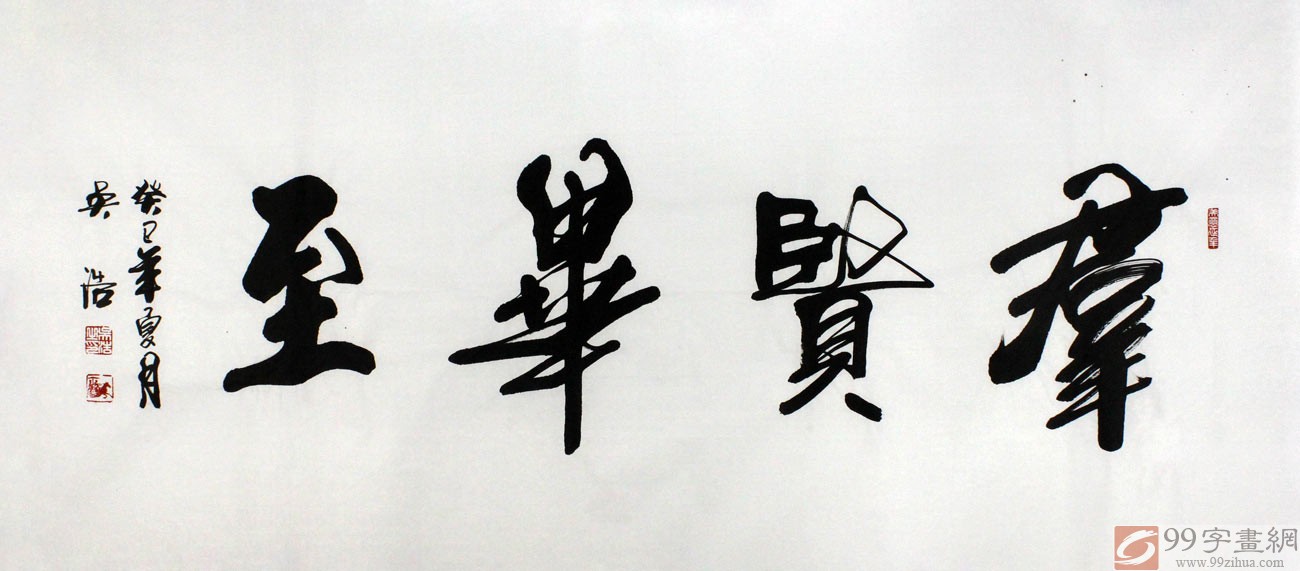 羣賢畢至
癸巳年夏月
吴浩
99字畫網
www.99zihua.com